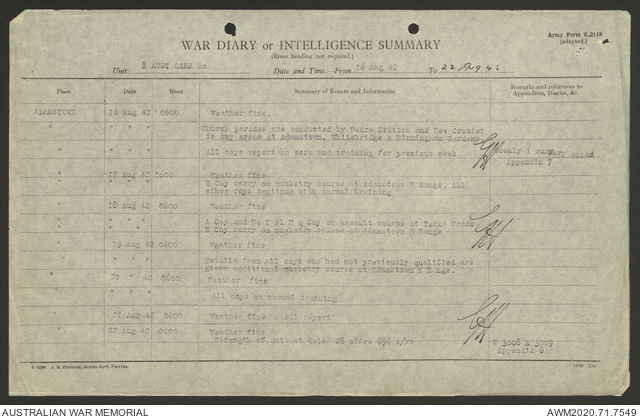 Army Form C.2118
(adapted.)
WAR DIARY or INTELLIGENCE SUMMARY
(Erase heading not required.)
Unit 8 AUST GARR Bn Date and Time.—From 16 Aug 42 To 22 Aug 42
Place Date Hour Summary of Events and Information Remarks and references to Appendices, Diaries, &c.
ADAMSTOWN 16 Aug 42 0600 Weather fine.
" " " " Church parades are conducted by Padre Britton and Rev Cranier
in coy areas at Adamstown, Whitebridge & Birmingham Gardens
" " " " All coys report on work and training for previous week Weekly
Appendix 7
" 17 Aug 42 0600 Weather fine
" " " " B Coy carry on musketry course at Adamstown R Range. All
other coys continue with normal training
" 18 Aug 42 0600 Weather fine
" " " " A Coy and No I Pl H q Coy on assault course at Tucks Track
B Coy carry on musketry course at Adamstown R Range
" 19 Aug 42 0600 Weather fine
" " " " Details from All coys who had not previously qualified are
given additional musketry course at Adamstown R Range.
" 20 " 42 0600 Weather fine
" " " " All coys on normal training
" 21 Aug 42 0600 Weather fine Nil report
" 22 Aug 42 0600 Weather fine
Strength of unit at date 28 offrs 896 o/rs W 3008 & 3009
Appendix 8
AUSTRALIAN WAR MEMORIAL AWM2020.71.7549